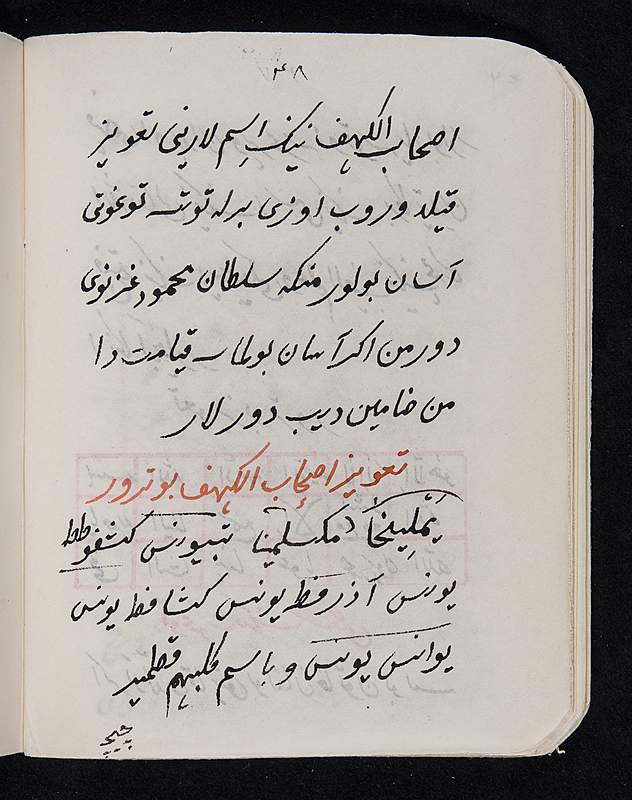 ۴۸
اصحاب الکهف نینک اسم لارینی تعویز
قیلد وروب اوزی برله توتسه توغوتی
آسان بولور منکه سلطان محمود غزنوی
دورمن اکر آسان بولماسه قیامت دا
من ضامین دیب دورلار
تعویز اصحاب الکهف بوترور
یملیخا مکسلمینا تبیونس کشفوطط
یونس آذرفط یونس کشافط یونس
یوانس یونس و باسم کلبهم قطمیر